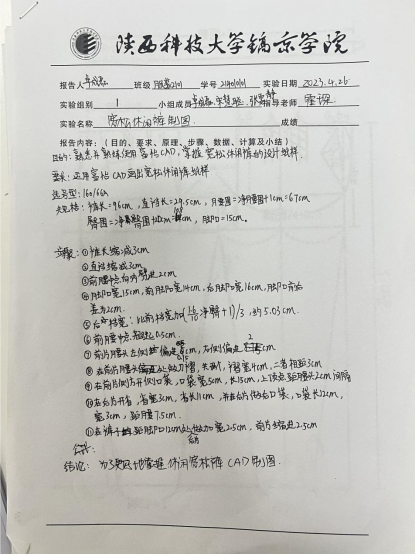 陕西科技大学镐京学院
报告人 班级 服装2101 学号 实验日期 2023.4.26
实验组别 1 小组成员 指导老师
实验名称 宽松休闲裤制图 成绩
报告内容:(目的、要求、原理、步骤、数据、计算及小结)
目的:熟悉并熟练使用富怡CAD,掌握宽松休闲裤的设计放样.
要求:运用富怡CAD画出宽松休闲裤纸样
选号型:160/66A
规格:裤长=96cm,直裆长=29.5cm,腰围=净腰围+1cm=67cm
臀围=净臀围+ cm,脚口=15cm。
步骤:①裤长缩减3cm
②直裆缩减3cm
③前腰中点向 进2cm
④脚口宽15cm,前脚口宽14cm,后脚口宽16cm,脚口前后
差为2cm.
⑤后 档宽:比前档宽加( 净臀+1)/3,约5.03cm.
⑥前腰中点 0.5cm.
⑦前片腰头左侧 偏进 ,右侧偏进 cm
⑧在前片腰头 处收省,共两个,省宽4cm,二者相距3cm
⑨在前片侧方开侧口袋,口袋宽5cm,长15cm,上顶点距腰头2cm间隔
⑩在后片开省,省宽3cm,省长11cm,并在后片做后口袋,口袋长12cm,
宽3cm,距腰7.5cm.
⑪在裤 距脚口12cm处 加宽2.5cm,前片缩进2.5cm
结论:为了更好地掌握休闲宽松裤CAD制图.